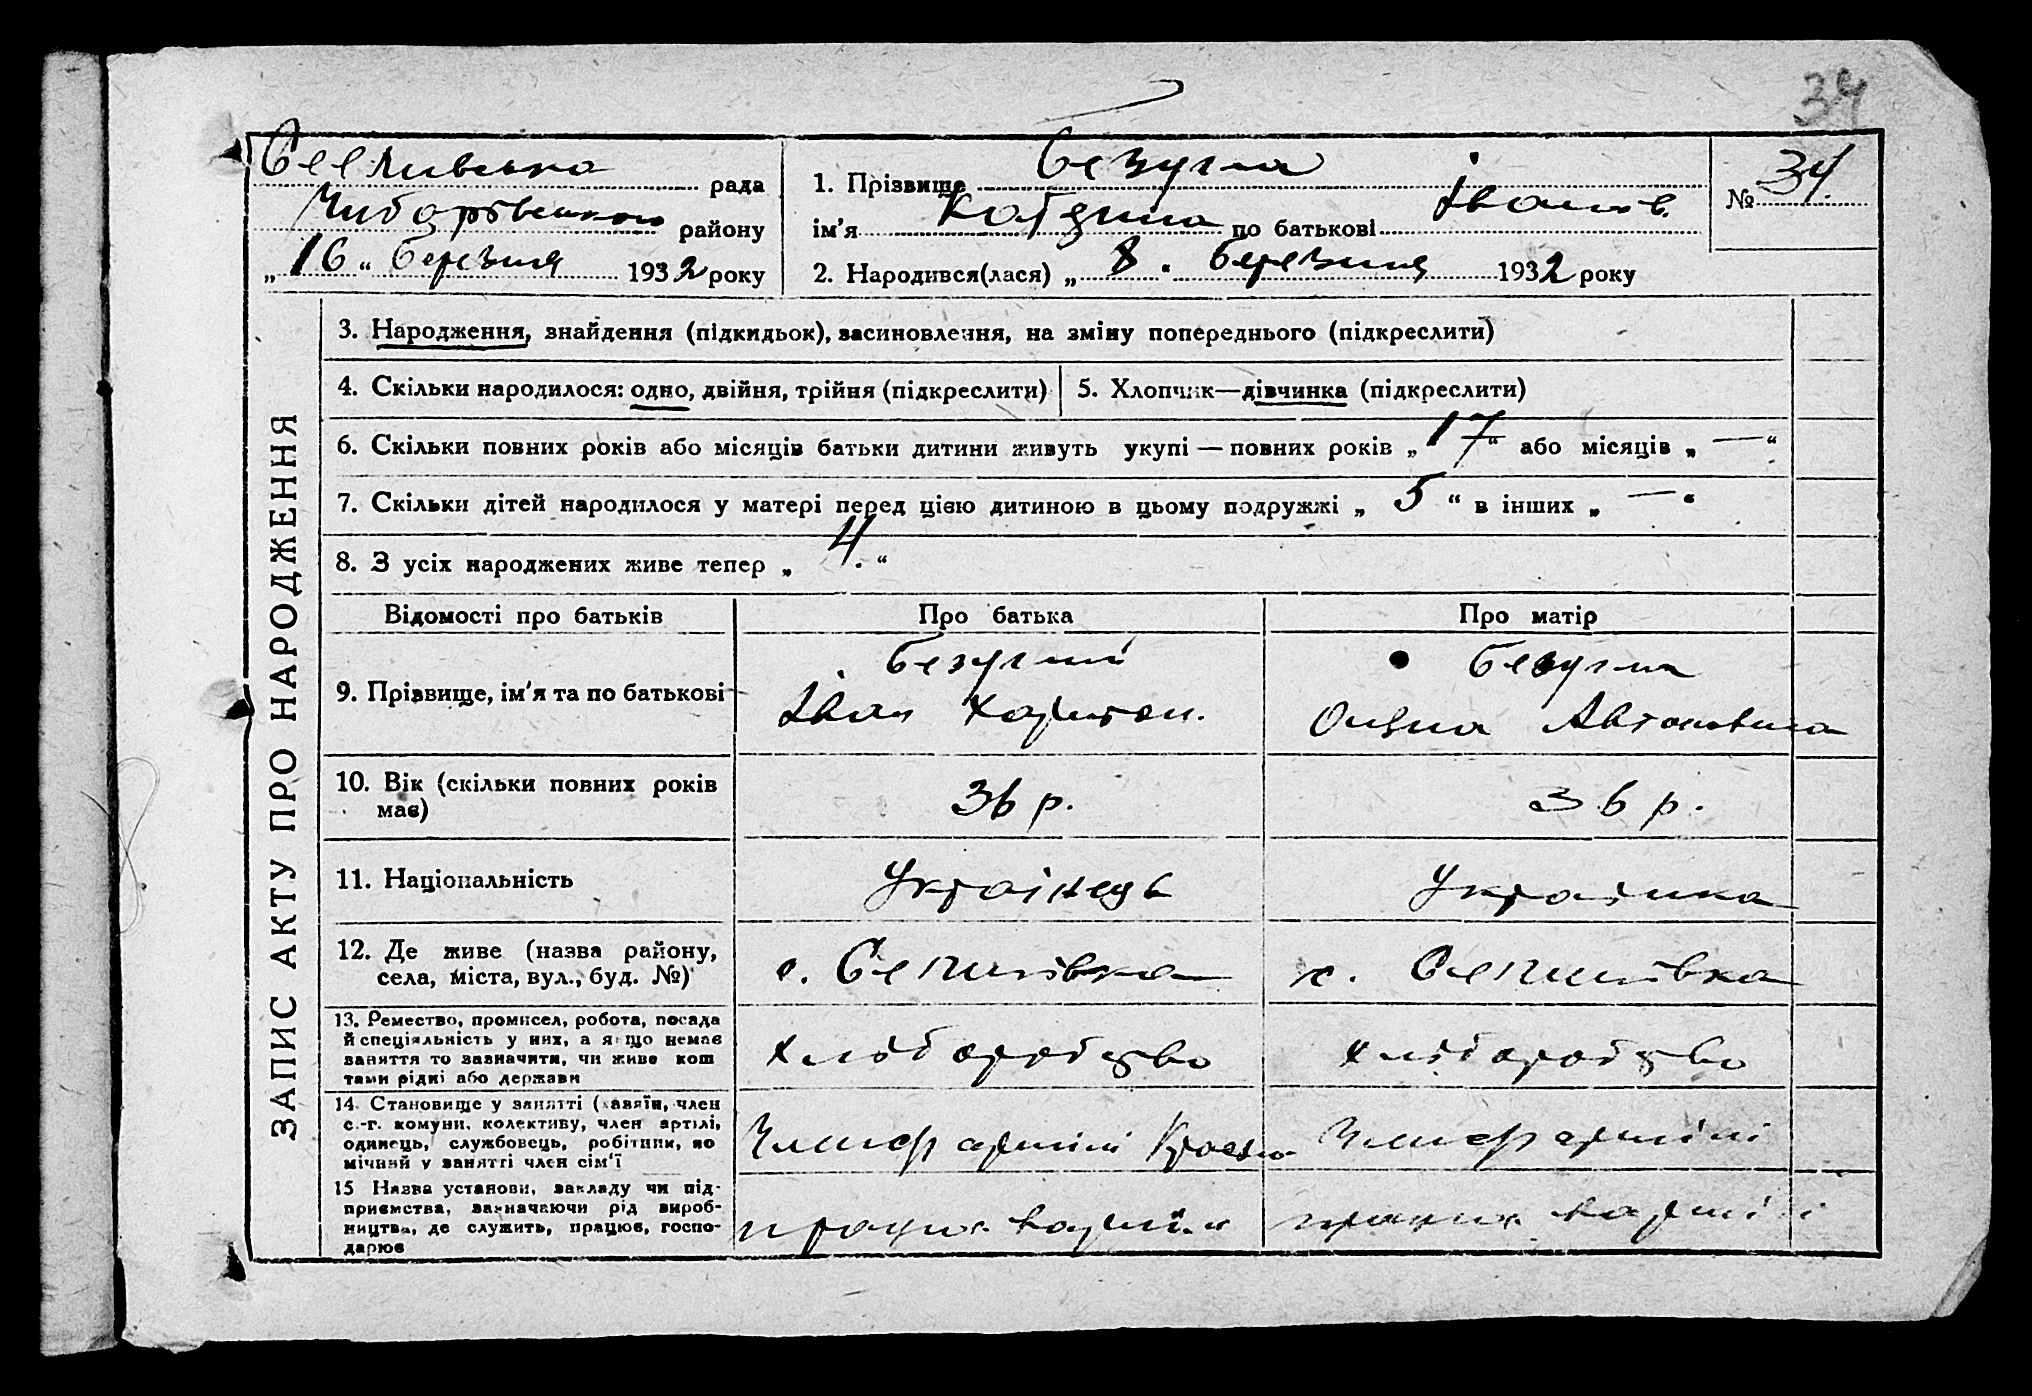 34
Селливська рада
Чибарівського району
„ 16 “ березня 1932 року
1. Прізвище Безугла
ім'я Катерина по батькові Іванов.
№ 34.
2. Народився(лася) „ 8 “ березня 1932 року
ЗАПИС АКТУ ПРО НАРОДЖЕННЯ
3. Народження, знайдення (підкидьок), засиновлення, на зміну попереднього (підкреслити)
4. Скільки народилося: одно, двійня, трійня (підкреслити)
5. Хлопчик—дівчинка (підкреслити)
6. Скільки повних років або місяців батьки дитини живуть укупі — повних років „ 17 “ або місяців „ — “
7. Скільки дітей народилося у матері перед цією дитиною в цьому подружжі „ 5 “ в інших „ — “
8. З усіх народжених живе тепер „ 4. “
Відомості про батьків
Про батька
Про матір
9. Прізвище, ім'я та по батькові
Безуглий
Іван Харитон.
Безугла
Автоновна
10. Вік (скільки повних років
має)
36 р.
36 р.
11. Національність
Українець
Українка
12. Де живе (назва району,
села, міста, вул., буд. №)
с.
с.
13. Ремество, промисел, робота, посада
й спеціяльність у них, а якщо немає
заняття то зазначити, чи живе кош
тами рідні або держави
Хліборобство
Хліборобство
14. Становище у занятті (хазяїн, член
с.-г. комуни, колективу, член артілі,
одинець, службовець, робітник, по
мічний у занятті член сім'ї
Член с/г артілі
Член с/г артілі
15 Назва установи, закладу чи під-
приємства, зазначаючи рід вироб-
ництва, де служить, працює, госпо-
дарює
працює в артілі
працює в артілі